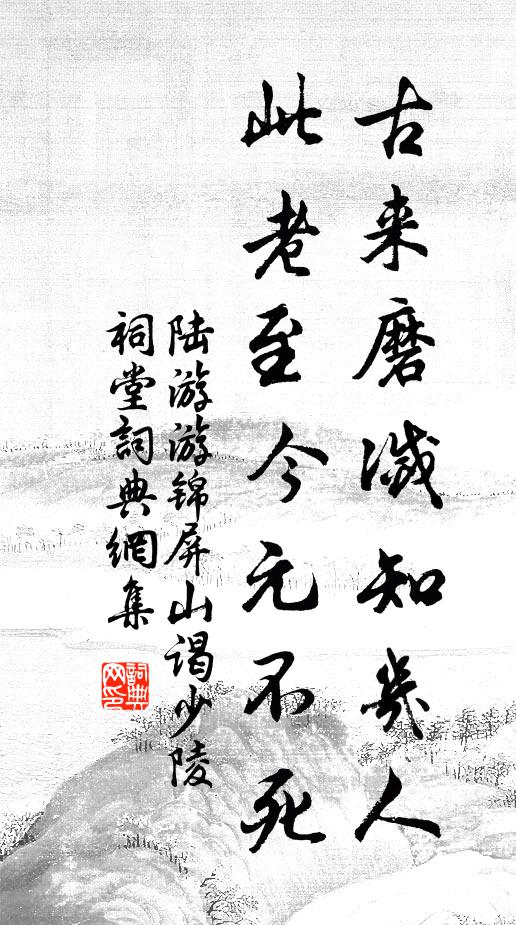 古来磨滅知幾人
此老至今元不死
陆游游锦屏山谒少陵
祠堂詞典網集
詞典网印